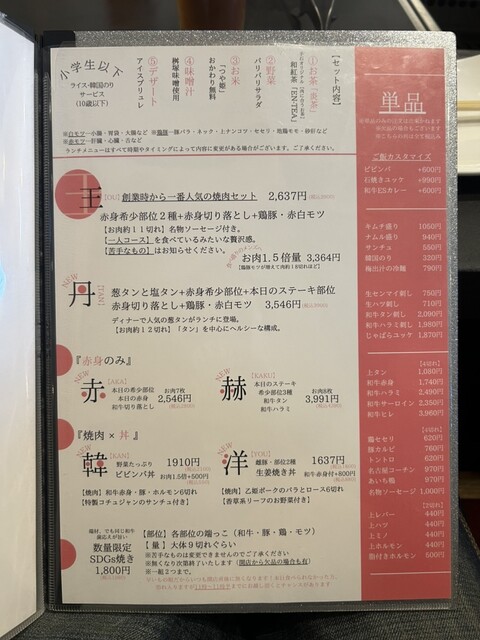 小学生以下
ライス・韓国のり
サービス
(10歳以下)
【セット内容】
①お茶「炎茶」
和紅茶「EN-TEA」
②野菜
パリパリサラダ
③お米
「つや姫」
おかわり無料
④味噌汁
桝塚味噌使用
⑤デザート
アイスブリュレ
ランチメニューはすべて時期やタイミングによって内容に変更がある場合がございます。ご了承ください。
王
【OU】
創業時から一番人気の焼肉セット 2,637円
赤身希少部位2種+赤身切り落とし+鶏豚・赤白モツ
【お肉約11切れ】名物ソーセージ付き。
【一人コース】を食べているみたいな贅沢感。
【苦手なもの】はお知らせください。
お肉1.5倍量 3,364円
NEW
丹
【TAN】
葱タンと塩タン+赤身希少部位+本日のステーキ部位
赤身切り落とし+鶏豚・赤白モツ 3,546円
ディナーで人気の葱タンがランチに登場。
【お肉約12切れ】「タン」を中心にヘルシーな構成。
『赤身のみ』
NEW
赤
【AKA】
本日の希少部位
本日の赤身
和牛切り落とし
お肉7枚
2,546円
NEW
赫
【KAKU】
本日のステーキ
希少部位3種
和牛タン
和牛ハラミ
お肉8枚
3,991円
『焼肉×丼』
NEW
韓
【KAN】
野菜たっぷり
ビビンバ丼
1910円
お肉1.5倍+500円
【焼肉】和牛赤身・豚・ホルモン6切れ
【特製コチュジャンのサンチュ付き】
NEW
洋
【YOU】
雌豚・部位2種
生姜焼き丼
1637円
和牛赤身付+800円
【焼肉】乙姫ポークのバラとロース6切れ
(香草系リーフのお野菜付き)
端材、でも同じ和牛
満足えが旨い
数量限定
SDGs焼き
1,800円
【部位】各部位の端っこ(和牛・豚・鶏・モツ)
【量】大体9切れぐらい
※苦手なものは変更できませんのでご了承ください
※無くなり次第終了いたします(開店から欠品の場合も有)
※一起こつまで。
単品
ご飯カスタマイズ
ビビンバ +600円
石焼きユッケ +990円
和牛ESカレー +600円
キムチ盛り 1050円
ナムル盛り 940円
サンチュ 550円
韓国のり 320円
梅出汁の冷麺 790円
生センマイ刺し 760円
生ハツ刺し 710円
和牛タン刺し 2,090円
和牛ハラミ刺し 1,980円
じゃばらユッケ 1,870円
上タン 1,080円
和牛赤身 1,740円
和牛ハラミ 2,490円
和牛サーロイン 2,350円
和牛ヒレ 3,960円
鶏セセリ 620円
豚カルビ 760円
トントロ 620円
名古屋コーチン 970円
あいち鴨 970円
名物ソーセージ 1,000円
上レバー 440円
上ハツ 440円
上ミノ 440円
上ホルモン 440円
脂付きホルモン 600円